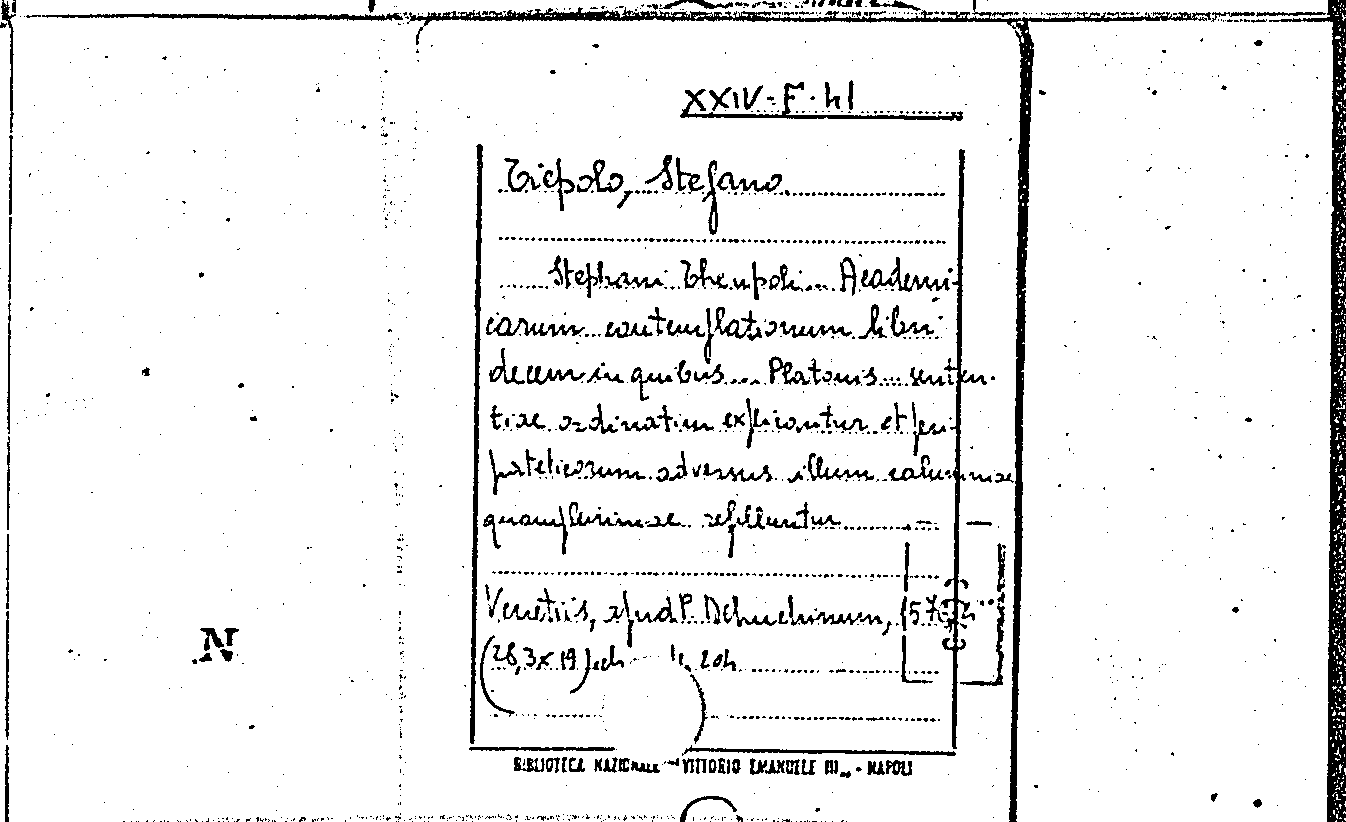 XXIV-F-41
Tiepolo, Stefano.
Stephani Theupoli... Academi-
carum contemplationum libri
decem in quibus... Platonis... senten-
tiae ordinatim explicantur et peri-
pateticorum adversus illum calumniae
quamplurimae refelluntur. —
Venetiis, apud P. Dehuchinum,
(28,3x19)
N
BIBLIOTECA NAZIONALE VITTORIO EMANUELE III - NAPOLI